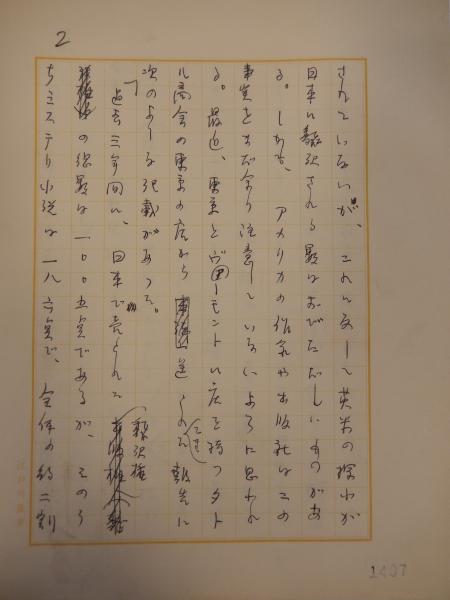 2
されていないが、これに反して英米の探小が
日本に飜訳される数はおびただしいものがあ
る。しかも、アメリカの作家や出版社はこの
事実をまだ余り注意していないように思われ
る。最近、東京とヴァーモントに店を持つタト
ル商会の東京の店から送られてきた報告に
次のような記載があった。
「過去三年間に、日本で売られた飜訳権
の総数は一〇〇五点であるが、そのう
ちミステリ小説は一八六点で、全体の約二割
1407